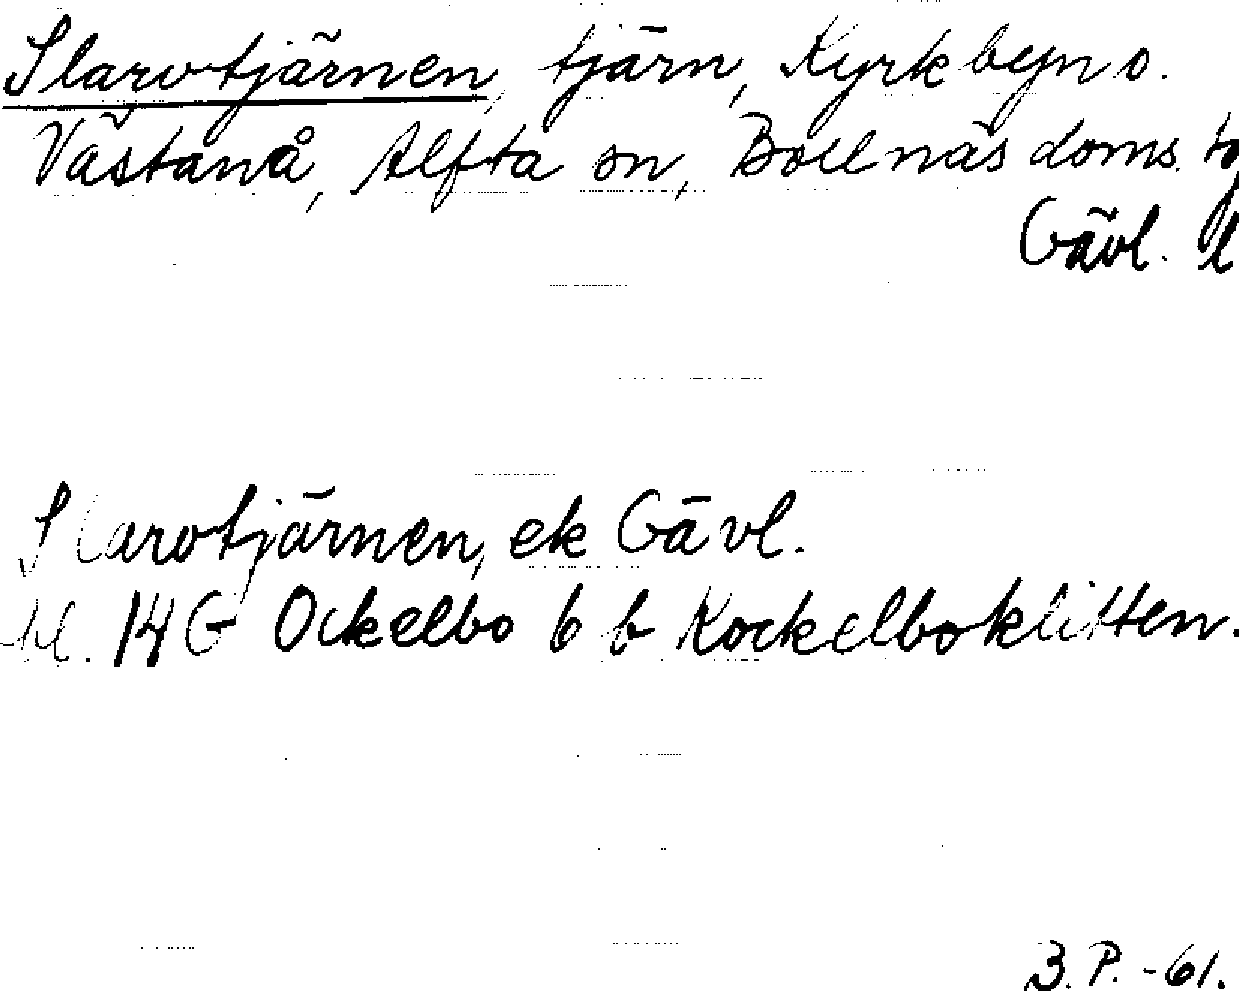 Slarvtjärnen, tjärn, Kyrkbyn o.
Västanå, Alfta sn, Bollnäs doms.
Gävl. l
Slarvtjärnen, ek Gävl.
bl. 14 G Ockelbo 6 b Kockelboklitten.
B.P. -61.